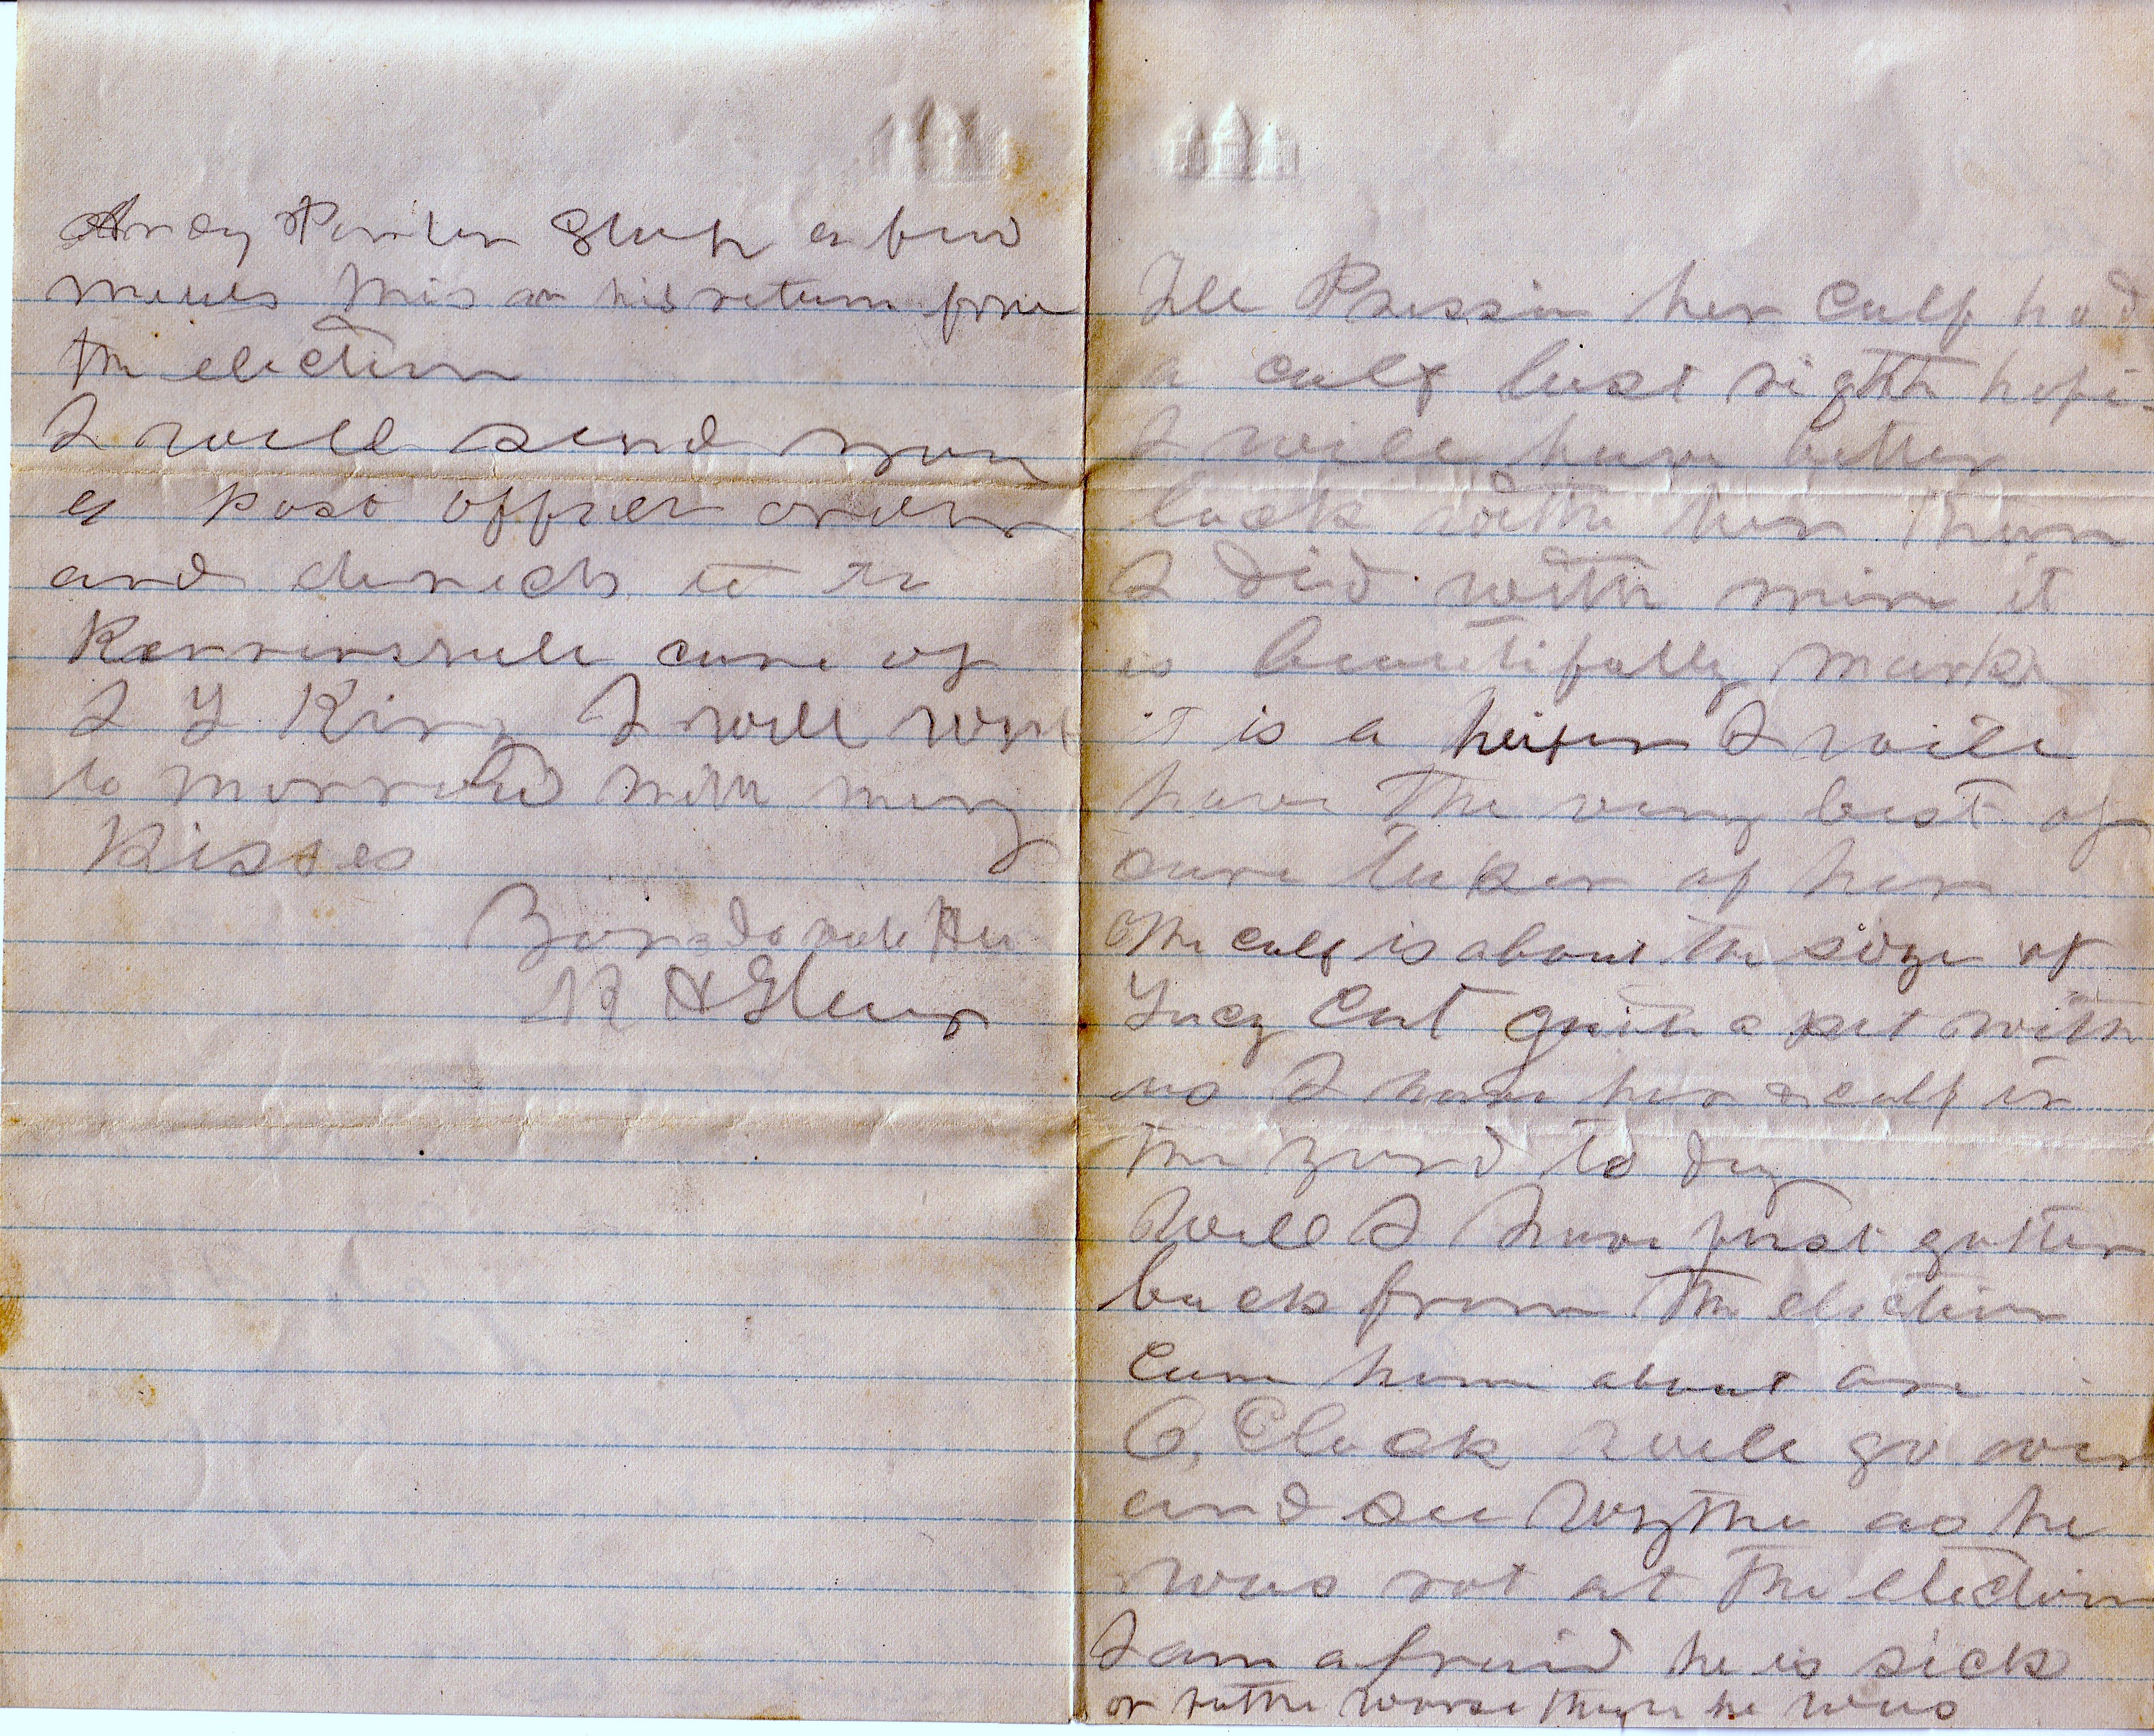 Andy Porter Stop a few
the election
I will send you
a post officer order
and direch it to
Kernersvill care of
I Y King I will writ
to morrow with meny
Kisses
R H Glenn
Tell Pressia her Calf had
a calf last nighth hope
I will have better
luck with her than
I did with mine it
is beautifully mark
it is a heifer I will
have the very best of
care taken of her
The calf is about the size of
Lucy Cat quite a pet with
us I have her & calf in
the yard to day
Well I have just gotten
back from the election
Came home about one
O, Clock will go over
and see Wythe as he
was not at the election
I am afraid he is sick
or rather worse than he was